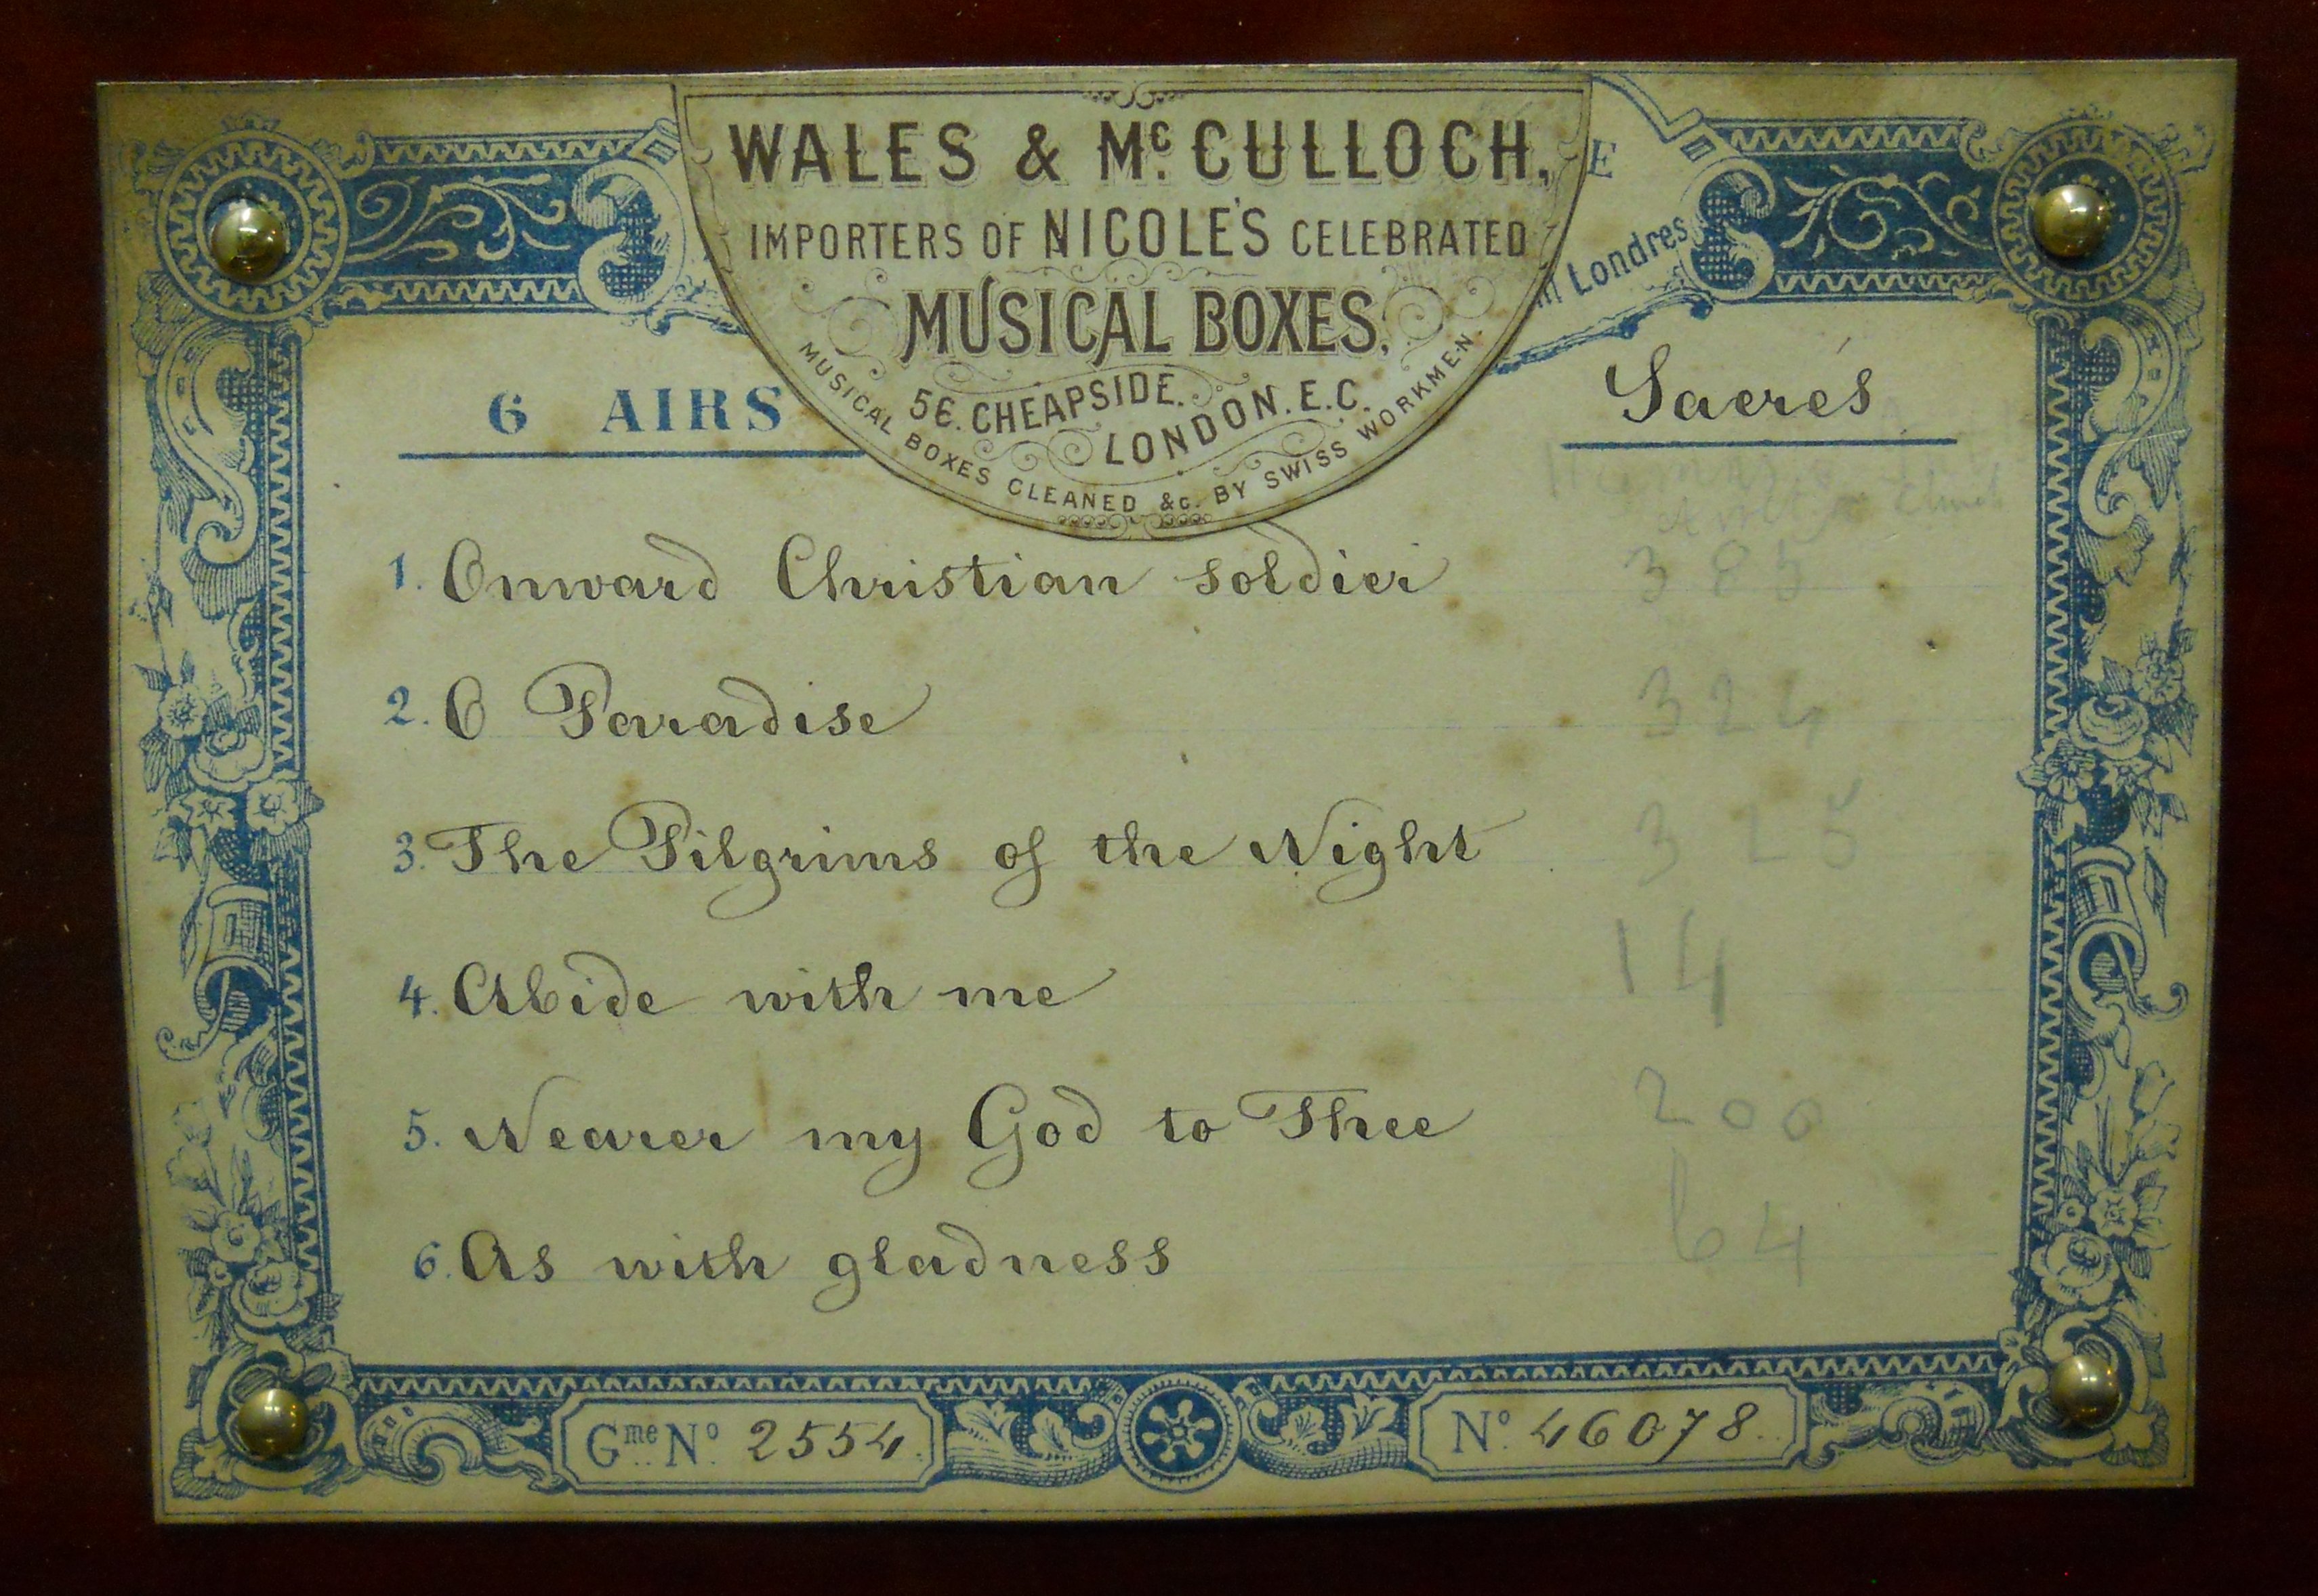 WALES & Mc. CULLOCH,
E
IMPORTERS OF NICOLE'S CELEBRATED
Londres
MUSICAL BOXES,
56. CHEAPSIDE.
LONDON. E.C.
MUSICAL BOXES CLEANED &c. BY SWISS WORKMEN.
6 AIRS
Sacrés
1. Onward Christian soldier 385
2. O Paradise 324
3. The Pilgrims of the Night 325
4. Abide with me 14
5. Nearer my God to Thee 200
6. As with gladness 64
Gme No. 2554
No. 46078